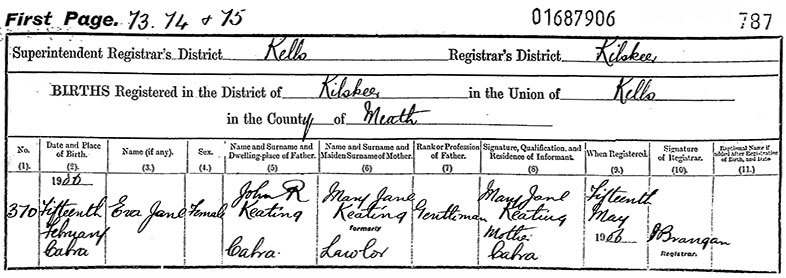 First Page. 73. 74 & 75 01687906 787
Superintendent Registrar's District Kells Registrar's District Kilskeer
BIRTHS Registered in the District of Kilskeer in the Union of Kells
in the County of Meath
No. Date and Place of Birth. Name (if any). Sex. Name and Surname and Dwelling-place of Father. Name and Surname and Maiden Surname of Mother. Rank or Profession of Father. Signature, Qualification, and Residence of Informant. When Registered. Signature of Registrar. Baptismal Name if added after Registration of Birth, and Date.
(1). (2). (3.) (4.) (5) (6) (7) (8) (9.) (10). (11.)
1900 John R Mary Jane Mary Jane Fifteenth
370 Fifteenth Eva Jane Female Keating Keating Gentleman Keating May
February formerly Mother 1900 J Brangan
Cabra Cabra Lawlor Cabra Registrar.